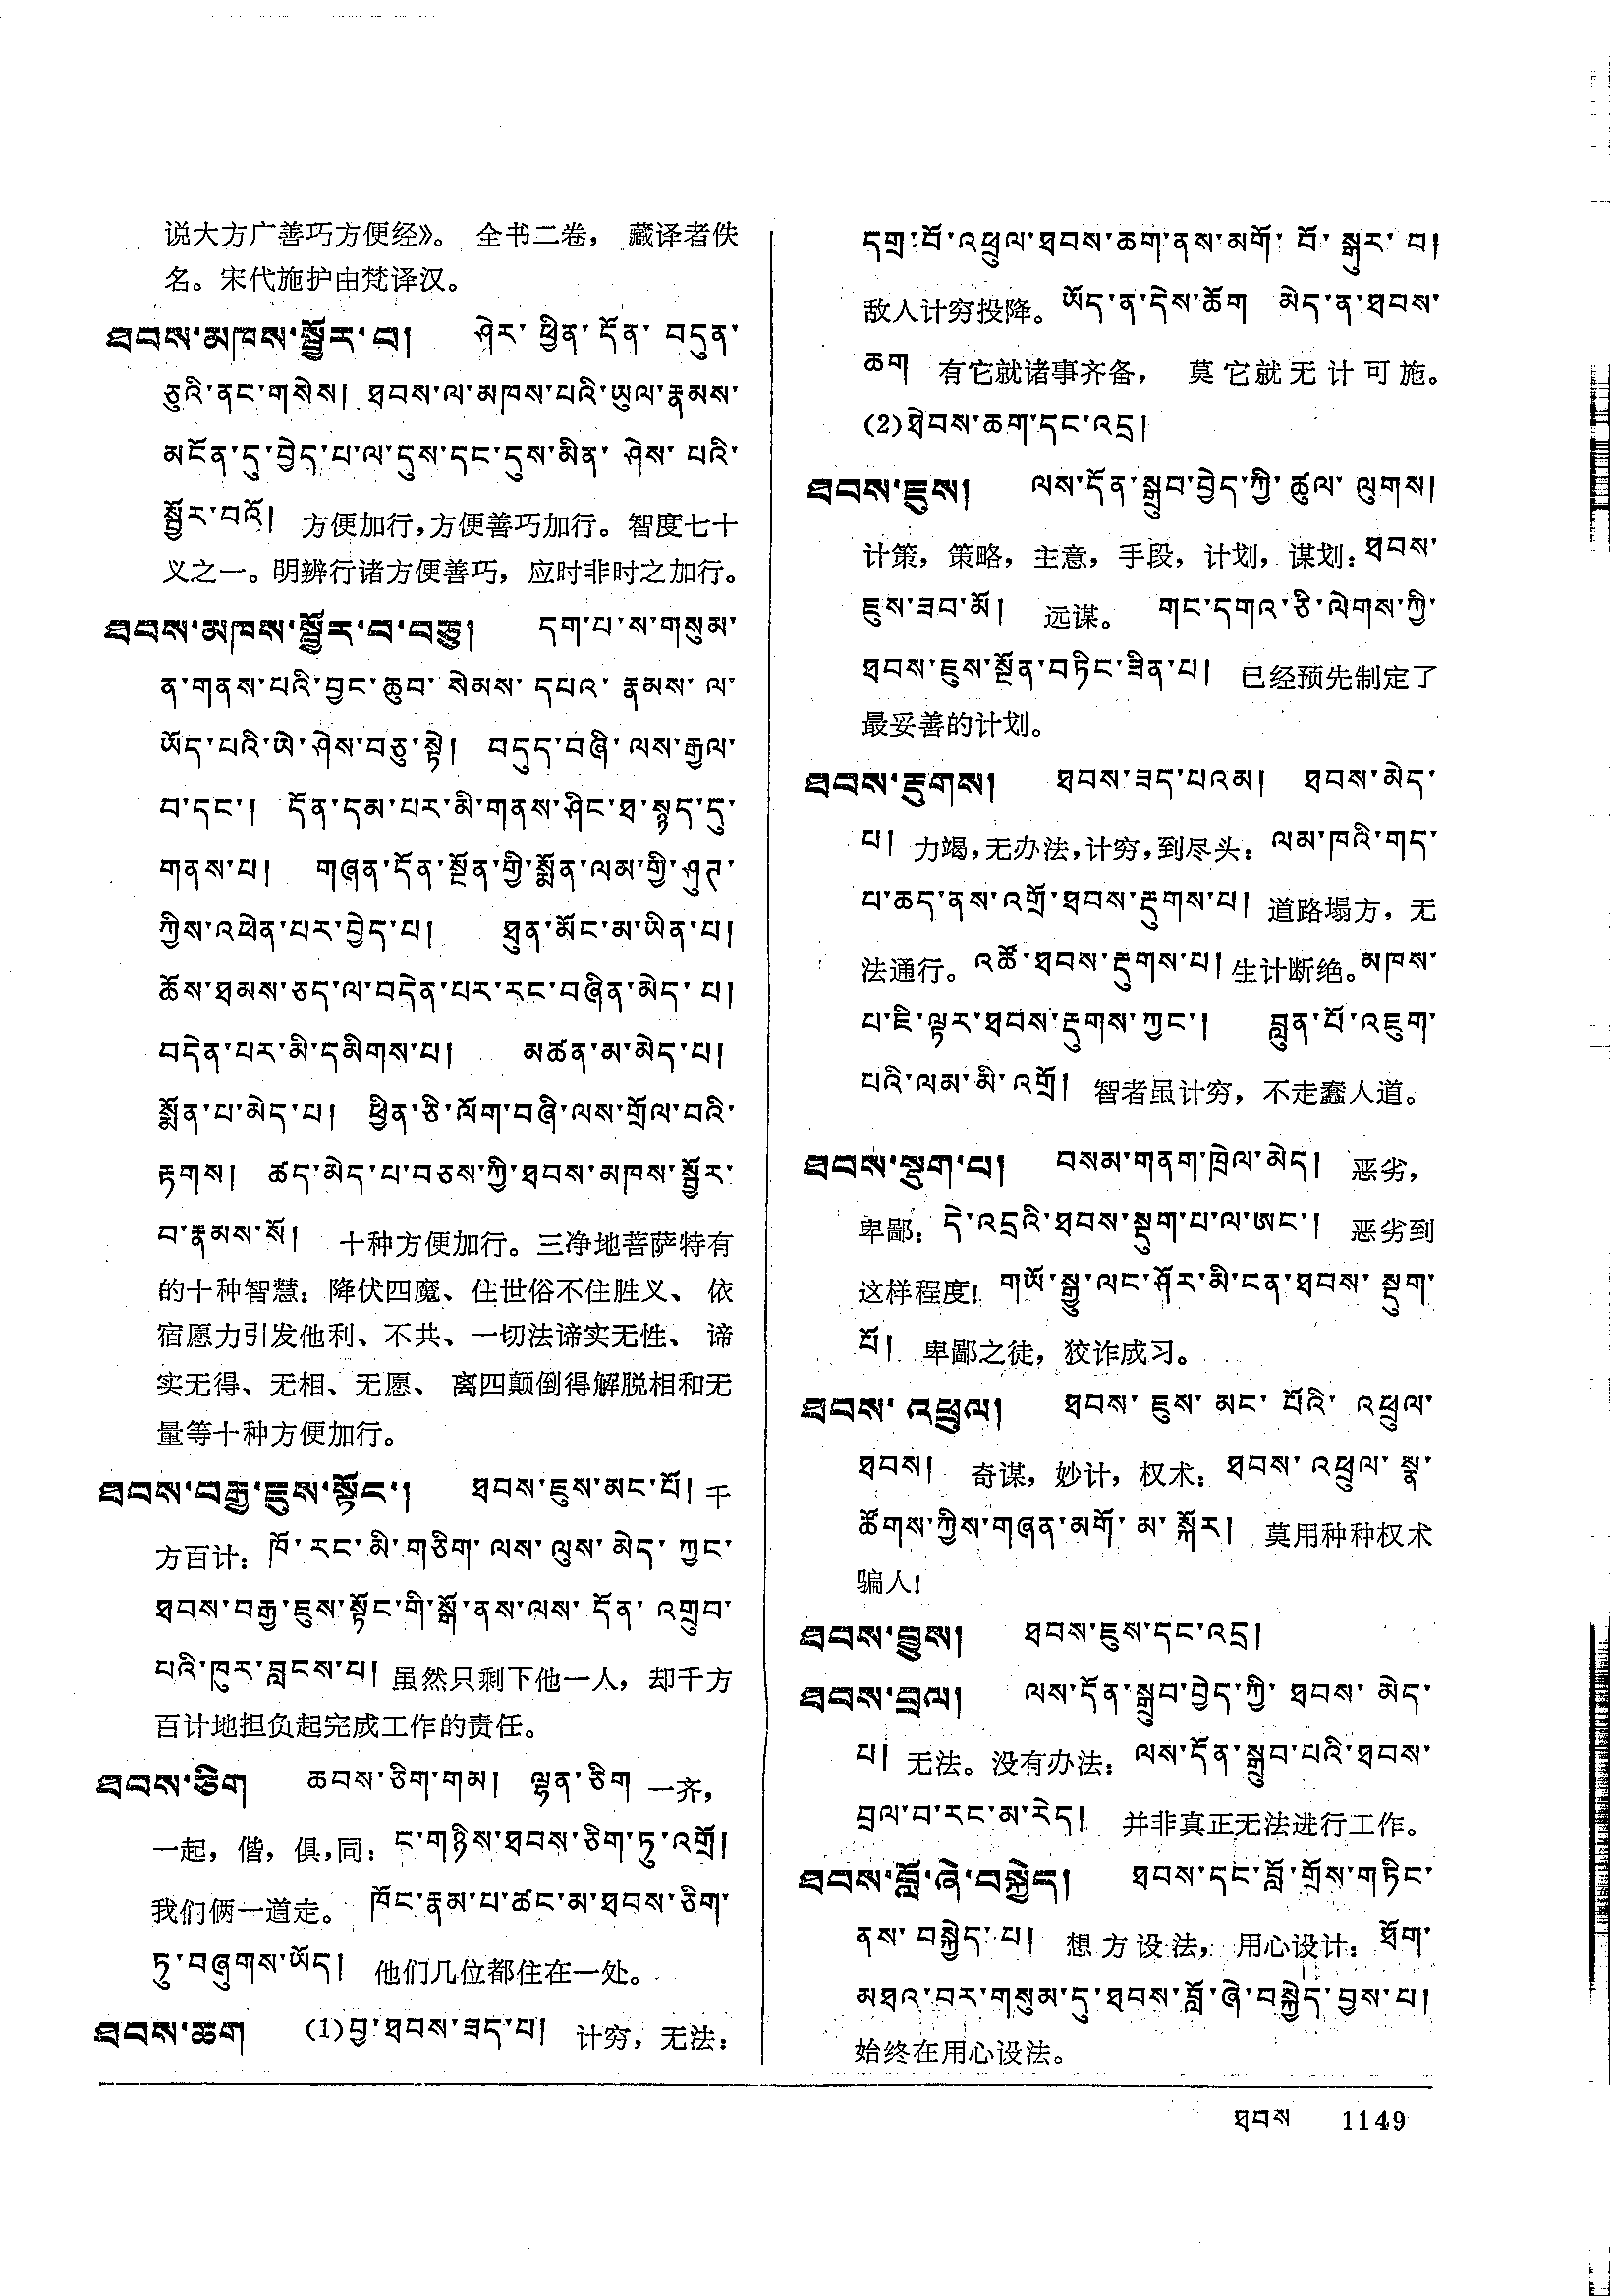 说大方广善巧方便经》。 全书二卷， 藏译者佚
名。宋代施护由梵译汉。
ཐབས་མཁས་སྦྱོར་བ། ཤེར་ ཕྱིན་ དོན་ བདུན་
ཅུའི་ནང་གསེས། ཐབས་ལ་མཁས་པའི་ཡུལ་རྣམས་
མངོན་དུ་བྱེད་པ་ལ་དུས་དང་དུས་མིན་ ཤེས་ པའི་
སྦྱོར་བའོ། 方便加行，方便善巧加行。智度七十
义之一。明辨行诸方便善巧，应时非时之加行。
ཐབས་མཁས་སྦྱོར་བ་བཅུ། དག་པ་ས་གསུམ་
ན་གནས་པའི་བྱང་ཆུབ་ སེམས་ དཔའ་ རྣམས་ ལ་
ཡོད་པའི་ཡེ་ཤེས་བཅུ་སྟེ། བདུད་བཞི་ ལས་རྒྱལ་
བ་དང་། དོན་དམ་པར་མི་གནས་ཤིང་ཐ་སྙད་དུ་
གནས་པ། གཞན་དོན་སྔོན་གྱི་སྨོན་ལམ་གྱི་ཤུཊ་
ཀྱིས་འཕེན་པར་བྱེད་པ། ཐུན་མོང་མ་ཡིན་པ།
ཆོས་ཐམས་ཅད་ལ་བདེན་པར་རང་བཞིན་མེད་ པ།
བདེན་པར་མི་དམིགས་པ། མཚན་མ་མེད་པ།
སྨོན་པ་མེད་པ། ཕྱིན་ཅི་ལོག་བཞི་ལས་གྲོལ་བའི་
རྟགས། ཚད་མེད་པ་བཅས་ཀྱི་ཐབས་མཁས་སྦྱོར་
བ་རྣམས་སོ། 十种方便加行。三净地菩萨特有
的十种智慧：降伏四魔、住世俗不住胜义、 依
宿愿力引发他利、不共、一切法谛实无性、 谛
实无得、无相、无愿、 离四颠倒得解脱相和无
量等十种方便加行。
ཐབས་བརྒྱ་ཇུས་སྟོང་། ཐབས་ཇུས་མང་པོ། 千
方百计：ཁོ་ རང་མི་གཅིག་ ལས་ ལུས་ མེད་ ཀྱང་
ཐབས་བརྒྱ་ཇུས་སྟོང་གི་སྒོ་ནས་ལས་ དོན་ འགྲུབ་
པའི་ཁུར་བླངས་པ། 虽然只剩下他一人，却千方
百计地担负起完成工作的责任。
ཐབས་ཅིག ཆབས་ཅིག་གམ། ལྷན་ཅིག 一齐，
一起，偕，俱，同：ང་གཉིས་ཐབས་ཅིག་ཏུ་འགྲོ།
我们俩一道走。 ཁོང་རྣམ་པ་ཚང་མ་ཐབས་ཅིག་
ཏུ་བཞུགས་ཡོད། 他们几位都住在一处。
ཐབས་ཆག (1)བྱ་ཐབས་ཟད་པ། 计穷，无法：
དགྲ་བོ་འཕྲུལ་ཐབས་ཆག་ནས་མགོ་ བོ་ སྐུར་ བ།
敌人计穷投降。ཡོད་ན་དེས་ཆོག མེད་ན་ཐབས་
ཆག 有它就诸事齐备， 莫它就无计可施。
(2)ཐེབས་ཆག་དང་འདྲ།
ཐབས་ཇུས། ལས་དོན་སྒྲུབ་བྱེད་ཀྱི་ ཚུལ་ ལུགས།
计策，策略，主意，手段，计划，谋划：ཐབས་
ཇུས་ཟབ་མོ། 远谋。 གང་དགའ་ཅི་ལེགས་ཀྱི་
ཐབས་ཇུས་སྔོན་བཏིང་ཟིན་པ། 已经预先制定了
最妥善的计划。
ཐབས་རྡུགས། ཐབས་ཟད་པའམ། ཐབས་མེད་
པ། 力竭，无办法，计穷，到尽头：ལམ་ཁའི་གད་
པ་ཆད་ནས་འགྲོ་ཐབས་རྡུགས་པ། 道路塌方，无
法通行。འཚོ་ཐབས་རྡུགས་པ། 生计断绝。མཁས་
པ་ཇི་ལྟར་ཐབས་རྡུགས་ཀྱང་། བླུན་པོ་འཇུག་
པའི་ལམ་མི་འགྲོ། 智者虽计穷，不走蠢人道。
ཐབས་སྡུག་པ། བསམ་གནག་ཁྲེལ་མེད། 恶劣，
卑鄙：དེ་འདྲའི་ཐབས་སྡུག་པ་ལ་ཨང་། 恶劣到
这样程度！གཡོ་སྒྱུ་ལང་ཤོར་མི་ངན་ཐབས་ སྡུག་
པོ། 卑鄙之徒，狡诈成习。
ཐབས་ འཕྲུལ། ཐབས་ ཇུས་ མང་ པོའི་ འཕྲུལ་
ཐབས། 奇谋，妙计，权术：ཐབས་ འཕྲུལ་ སྣ་
ཚོགས་ཀྱིས་གཞན་མགོ་ མ་ སྐོར། 莫用种种权术
骗人！
ཐབས་བྱུས། ཐབས་ཇུས་དང་འདྲ།
ཐབས་བྲལ། ལས་དོན་སྒྲུབ་བྱེད་ཀྱི་ ཐབས་ མེད་
པ། 无法。没有办法：ལས་དོན་སྒྲུབ་པའི་ཐབས་
བྲལ་བ་རང་མ་རེད། 并非真正无法进行工作。
ཐབས་བློ་ཞེ་བསྐྱེད། ཐབས་དང་བློ་གྲོས་གཏིང་
ནས་ བསྐྱེད་ པ། 想方设法， 用心设计：ཐོག་
མཐའ་བར་གསུམ་དུ་ཐབས་བློ་ཞེ་བསྐྱེད་བྱས་པ།
始终在用心设法。
ཐབས 1149